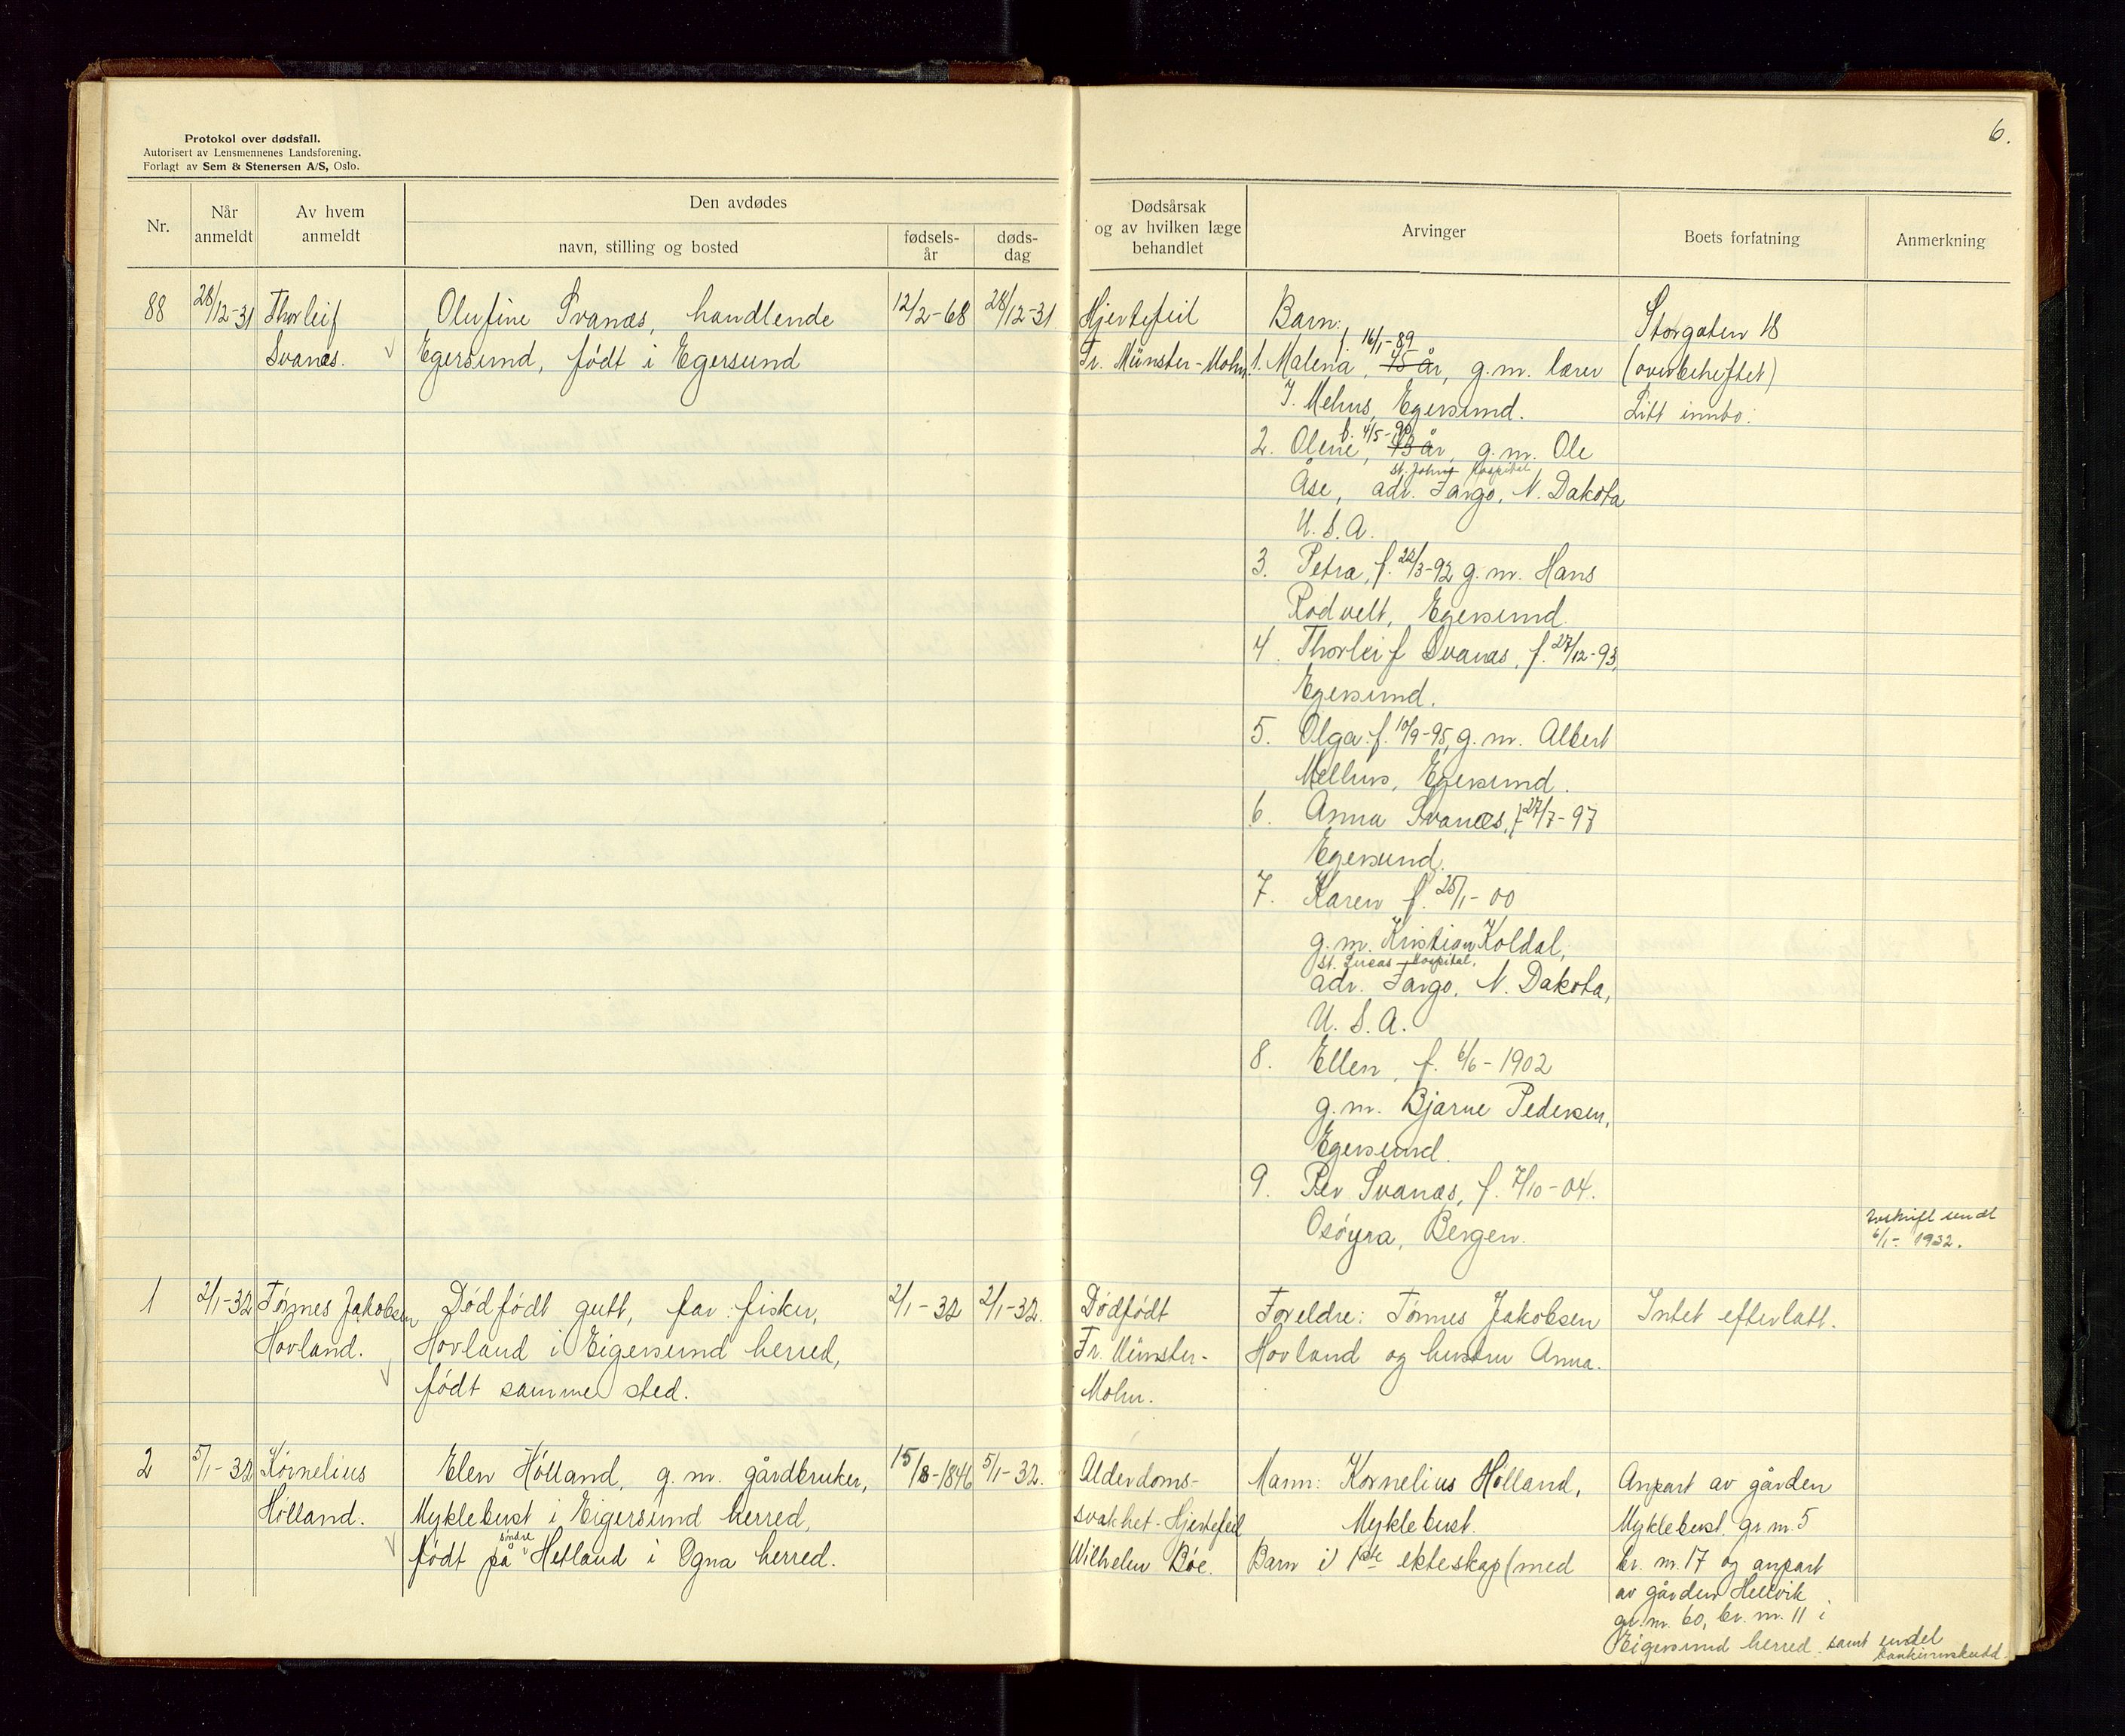 6.
Protokol over dødsfall.
Autorisert av Lensmennenes Landsforening.
Forlagt av Sem & Stenersen A/S, Oslo.
Nr.
Når anmeldt
Av hvem anmeldt
Den avdødes
navn, stilling og bosted
fødsels-år
døds-dag
Dødsårsak og av hvilken læge behandlet
Arvinger
Boets forfatning
Anmerkning
88
28/12-31
Thorleif
Svanæs.
Olufine Svanæs, handlende
Egersund, født i Egersund
12/2-68
28/12-31
Hjertefeil
Fr. Münster-Mohn.
Barn:
f. 16/1-89
1. Malena, 45 år, g.m. lærer
J. Mehus, Egersund.
f. 4/5-90
2. Olene, 43 år, g.m. Ole
St. Johns Hospital
Åse, adr. Fargo, N. Dakota
U.S.A.
3. Petra, f. 22/3-92 g.m. Hans
Rodvelt, Egersund.
4. Thorleif Svanæs, f. 27/12-93,
Egersund.
5. Olga f. 10/9-95, g.m. Albert
Mellus, Egersund.
6. Anna Svanæs, f 27/7-97
Egersund.
7. Karen f. 25/1-00
g.m. Kristian Koldal,
St. Lucas Hospital,
adr. Fargo, N. Dakota,
U.S.A.
8. Ellen, f. 6/6-1902
g.m. Bjarne Pedersen,
Egersund.
9. Per Svanæs, f. 7/10-04.
Osøyra, Bergen.
Storgaten 18
(overbeheftet)
Litt innbo.
sendt
6/1-1932.
1
2/1-32
Tønnes Jakobsen
Hovland.
Dødfødt gutt, far: fisker,
Hovland i Eigersund herred,
født samme sted.
2/1-32
2/1-32.
Dødfødt
Fr. Münster-
Mohn.
Foreldre: Tønnes Jakobsen
Hovland og hustru Anna.
Intet efterlatt.
2
5/1-32
Kornelius
Hølland.
Elen Hølland, g.m. gårdbruker,
Myklebust i Eigersund herred,
søndre
født på Hetland i Ogna herred.
15/8-1846
5/1-32.
Alderdoms-
svakhet-Hjertefeil
Wilhelm Bøe.
Mann: Kornelius Hølland,
Myklebust.
Barn i 1ste ekteskap (med
Anpart av gården
Myklebust, gr.nr. 5
br. nr. 17 og anpart
av gården Hellvik
gr.nr. 60, br. nr. 11 i
Eigersund herred samt endel
bankinnskudd.